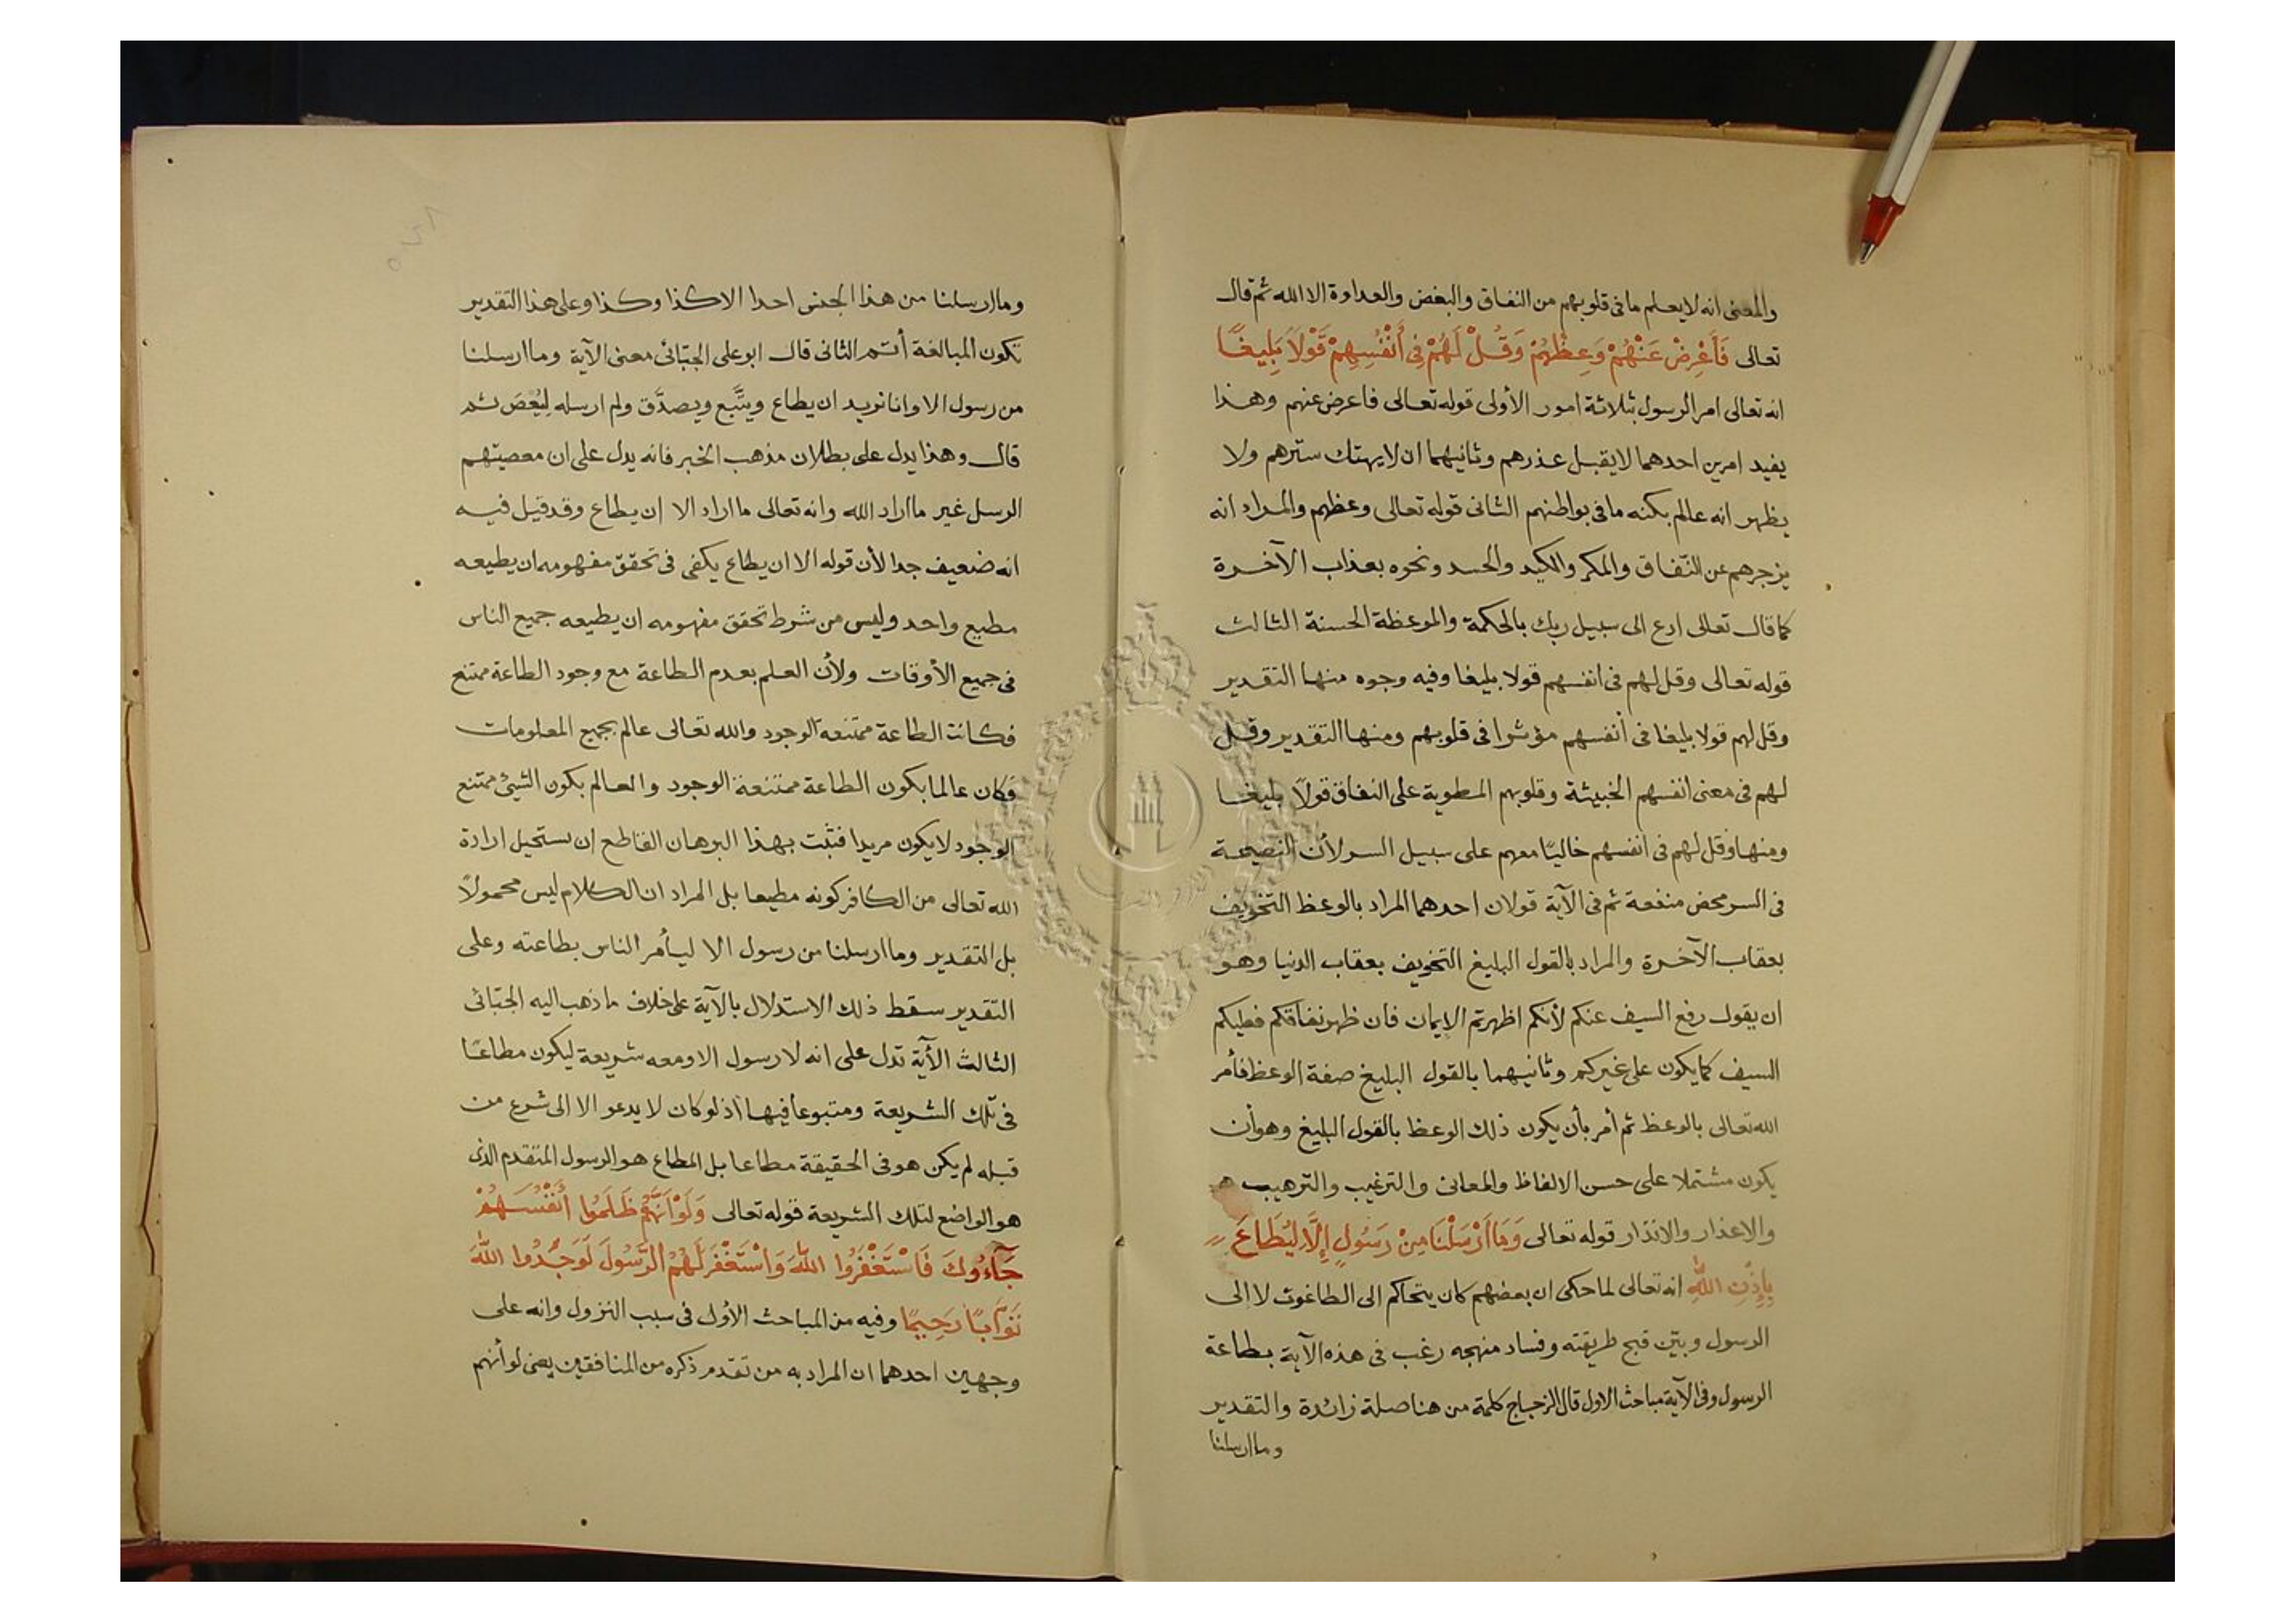 والمعنى انه لا يعلم ما فى قلوبهم من النفاق والبغض والعداوة الا الله ثم قال
تعالى فَأَعْرِضْ عَنْهُمْ وَعِظْهُمْ وَقُلْ لَهُمْ فِى أَنْفُسِهِمْ قَوْلاً بَلِيغًا
انه تعالى امر الرسول بثلاثة امور الأولى قوله تعالى فاعرض عنهم وهذا
يفيد امرين احدهما لا يقبل عذرهم وثانيهما ان لا يهتك سترهم ولا
يظهر انه عالم بكنه ما فى بواطنهم الثانى قوله تعالى وعظهم والمراد انه
يزجرهم عن النّفاق والمكر والكيد والحسد ونحوه بعذاب الآخرة
كما قال تعالى ادع الى سبيل ربك بالحكمة والموعظة الحسنة الثالث
قوله تعالى وقل لهم فى انفسهم قولا بليغا وفيه وجوه منها التقدير
وقل لهم قولا بليغا فى أنفسهم مؤثرا فى قلوبهم ومنها التقدير وقل
لهم فى معنى انفسهم الخبيثة وقلوبهم المطوية على النفاق قولاً بليغا
ومنها وقل لهم فى انفسهم خاليًا معهم على سبيل السر لأن النصيحة
فى السر محض منفعة ثم فى الآية قولان احدهما المراد بالوعظ التخويف
بعقاب الآخرة والمراد بالقول البليغ التخويف بعقاب الدنيا وهو
ان يقول رفع السيف عنكم لأنكم اظهرتم الايمان فان ظهر نفاقكم فعليكم
السيف كما يكون على غيركم وثانيهما بالقول البليغ صفة الوعظ فأمر
الله تعالى بالوعظ ثم أمر بأن يكون ذلك الوعظ بالقول البليغ وهو أن
يكون مشتملا على حسن الالفاظ والمعانى والترغيب والترهيب
والاعذار والانذار قوله تعالى وَمَا أَرْسَلْنَا مِنْ رَسُولٍ إِلَّا لِيُطَاعَ
بِإِذْنِ اللهِ انه تعالى لما حكى ان بعضهم كان يتحاكم الى الطاغوت لا الى
الرسول وبيّن قبح طريقته وفساد منهجه رغب فى هذه الآية بطاعة
الرسول وفى الآية مباحث الاول قال الزجاج كلمة من هنا صلة زائدة والتقدير
وما ارسلنا
وما ارسلنا من هذا الجنس احدا الا كذا وكذا وعلى هذا التقدير
تكون المبالغة أتم الثانى قال ابو على الجبّائى معنى الآية وما ارسلنا
من رسول الا وانا نريد ان يطاع ويتَّبع ويصدَّق ولم ارسله لِيُعصَ ثم
قال وهذا يدل على بطلان مذهب الخبر فانه يدل على ان معصيتهم
الرسل غير ما اراد الله وانه تعالى ما اراد الا ان يطاع وقد قيل فيه
انه ضعيف جدا لأن قوله الا ان يطاع يكفى فى تحقق مفهومه ان يطيعه
مطيع واحد وليس من شرط تحقق مفهومه ان يطيعه جميع الناس
فى جميع الأوقات ولأن العلم بعدم الطاعة مع وجود الطاعة ممتنع
فكانت الطاعة ممتنعة الوجود والله تعالى عالم بجميع المعلومات
فكان عالما بكون الطاعة ممتنعة الوجود والعالم بكون الشيئ ممتنع
الوجود لا يكون مريدا فثبت بهذا البرهان القاطع ان يستحيل ارادة
الله تعالى من الكافر كونه مطيعا بل المراد ان الكلام ليس محمولاً
بل التقدير وما ارسلنا من رسول الا ليأمر الناس بطاعته وعلى
التقدير سقط ذلك الاستدلال بالآية على خلاف ما ذهب اليه الجبّائى
الثالث الآية تدل على انه لا رسول الا ومعه شريعة ليكون مطاعًا
فى تلك الشريعة ومتبوعا فيها اذ لو كان لا يدعو الا الى شرع من
قبله لم يكن هو فى الحقيقة مطاعا بل المطاع هو الرسول المتقدم الذى
هو الواضع لتلك الشريعة قوله تعالى وَلَوْ أَنَّهُمْ ظَلَمُوا أَنْفُسَهُمْ
جَآءُوكَ فَاسْتَغْفَرُوا اللهَ وَاسْتَغْفَرَ لَهُمُ الرَّسُولَ لَوَجَدُوا اللهَ
تَوَّابًا رَحِيمًا وفيه من المباحث الأول فى سبب النزول وانه على
وجهين احدهما ان المراد به من تقدم ذكره من المنافقين يعنى لو أنهم